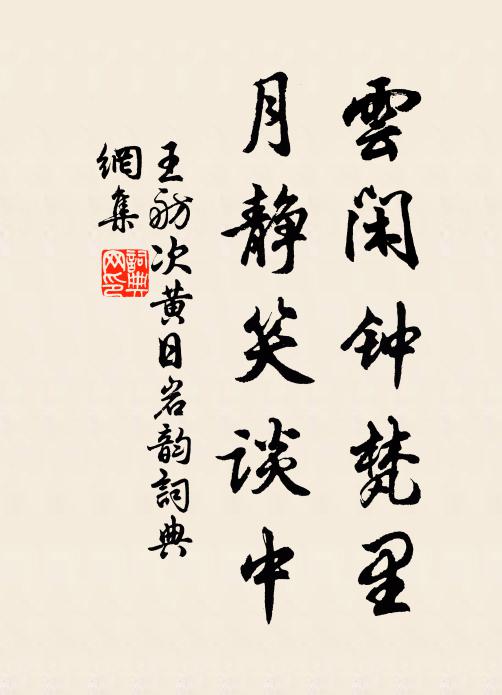 雲閑钟梵里
月静笑谈中
王舫次黄日岩韵詞典
網集
詞典
网印